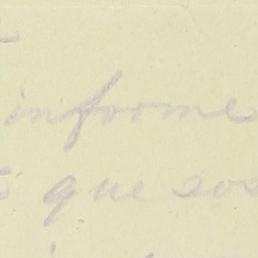 informe
que sos